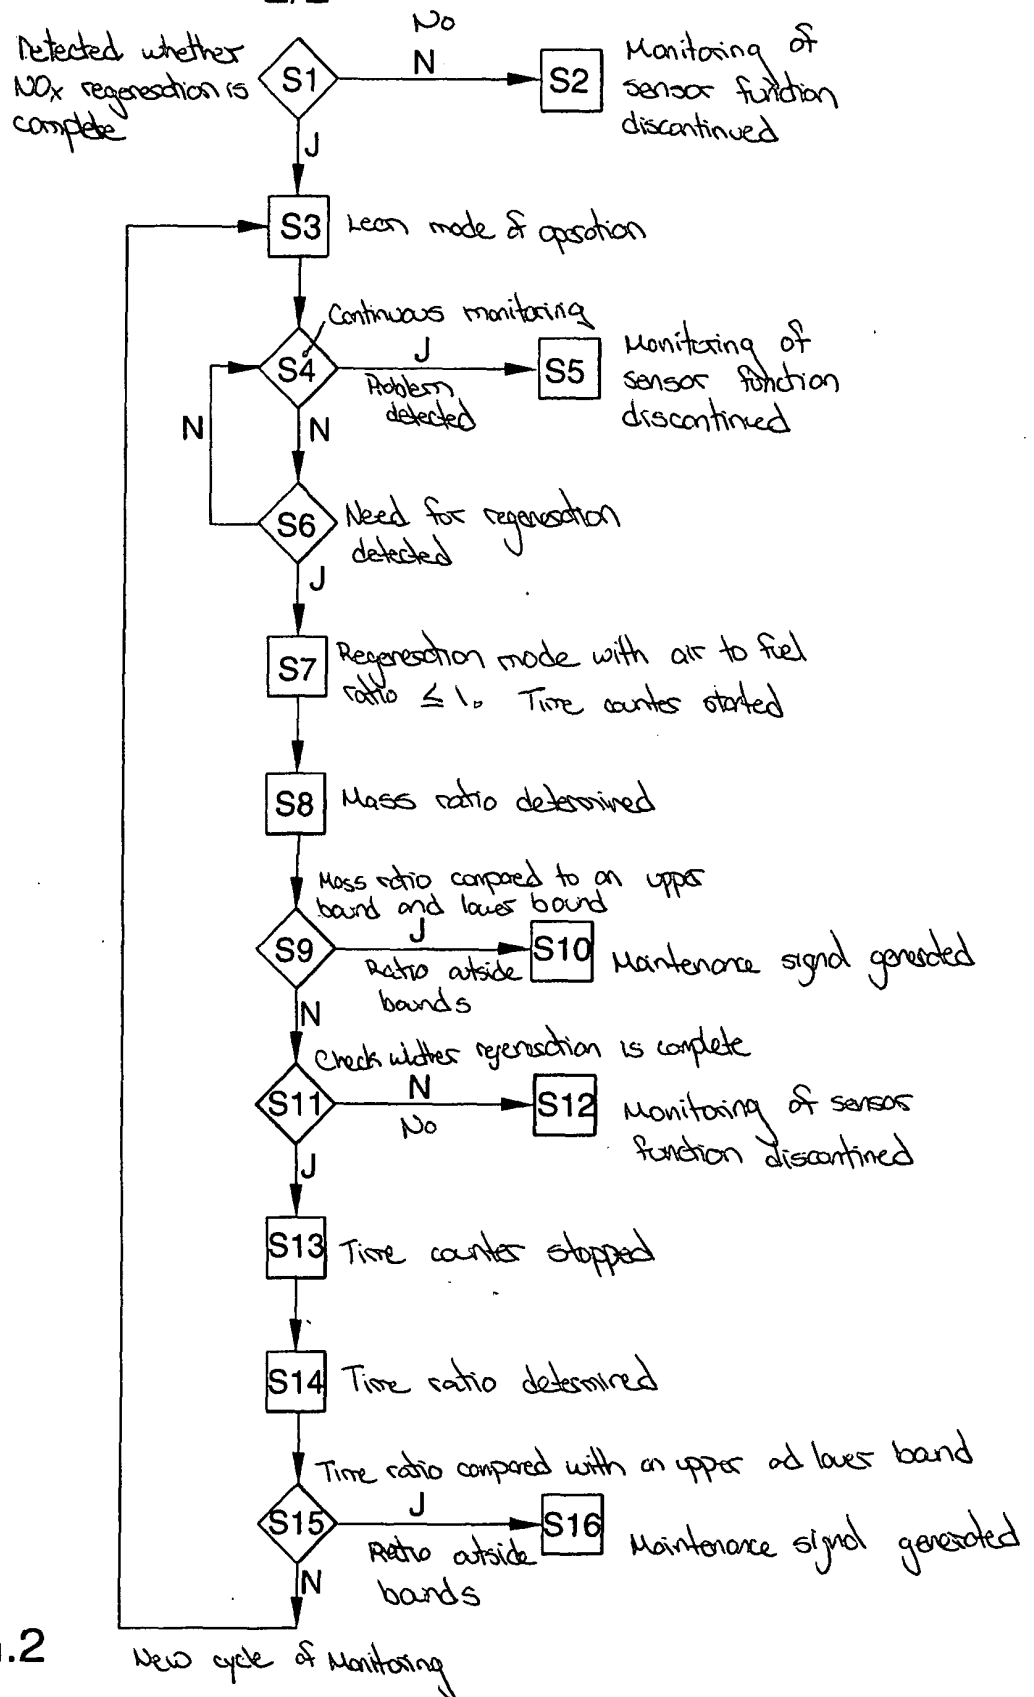 No
Detected whether
NOx regeneration is
complete
S1
N
S2
Monitoring of
sensor function
discontinued
J
S3
Lean mode of operation
Continuous monitoring
S4
J
Problem
detected
S5
Monitoring of
sensor function
discontinued
N
N
S6
Need for regeneration
detected
J
S7
Regeneration mode with air to fuel
ratio ≤ 1. Time counter started
S8
Mass ratio determined
Mass ratio compared to an upper
bound and lower bound
S9
J
Ratio outside
bounds
S10
Maintenance signal generated
N
Check wither regeneration is complete
S11
N
No
S12
Monitoring of sensor
function discontinued
J
S13
Time counter stopped
S14
Time ratio determined
Time ratio compared with an upper ad lower bound
S15
J
Ratio outside
bounds
S16
Maintenance signal generated
N
.2
New cycle of Monitoring